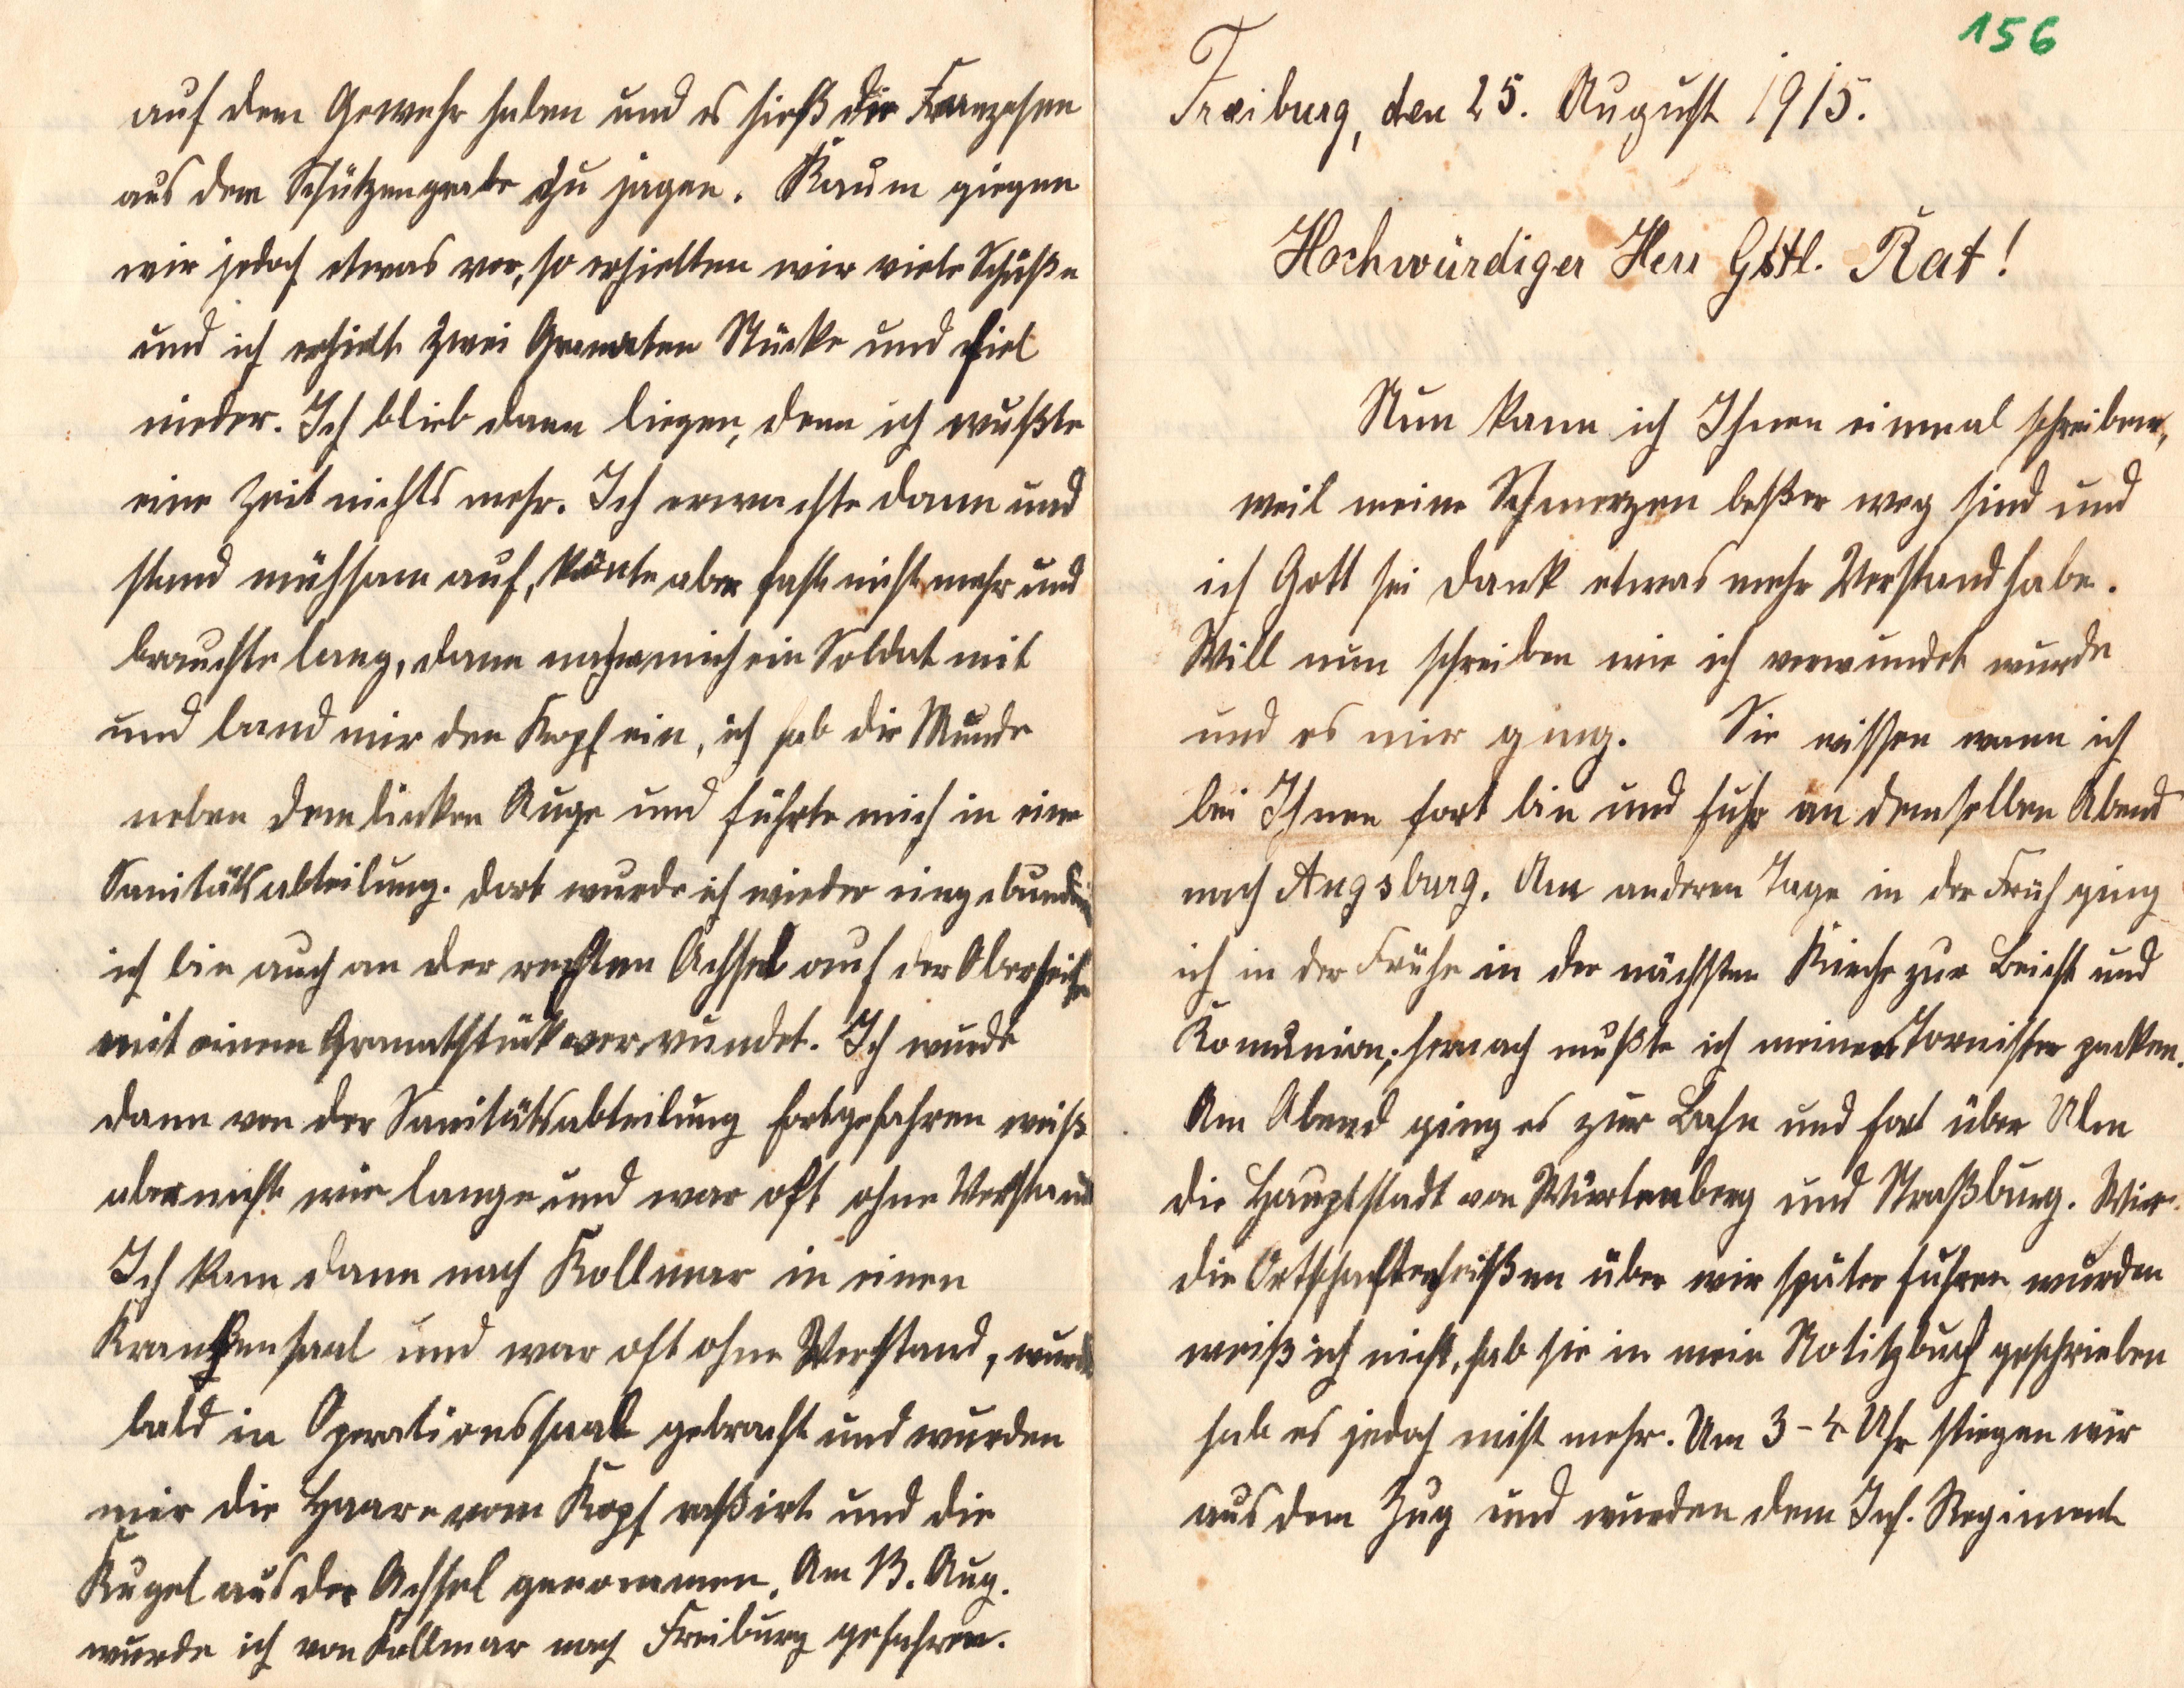 156
Freiburg, den 25. August 1915.
Hochwürdiger Herr Gstl. Rat!
Nun kann ich Ihnen einmal schreiben,
weil meine Schmerzen beßer weg sind und
ich Gott sei Dank etwas mehr Verstand habe.
Will nun schreiben wie ich verwundet wurde
und es mir ging. Sie wissen wann ich
bei Ihnen fort bin und fuhr an demselben Abend
nach Augsburg. Am anderen Tage in der Früh ging
ich in der Frühe in der nächsten Kirche zur Beicht und
Komunion; hernach mußte ich meinen Tornister packen.
Am Abend ging es zur Bahn und fort über Ulm
die Hauptstadt von Würtenberg und Straßburg. Wie
die Ortschaften heißen über wir später fuhren wurden
weiß ich nicht, hab sie in mein Notitzbuch geschrieben
hab es jedoch nicht mehr. Um 3-4 Uhr stiegen wir
aus dem Zug und wurden dem Inf. Regiment
auf dem Gewehr haben und es hieß die Franzosen
aus dem Schützengrabe zu jagen. Kaum giegen
wir jedoch etwas vor, so erhielten wir viele Schüße
und ich erhielt zwei Granaten Stücke und fiel
nieder. Ich blieb dann liegen, denn ich wußte
eine Zeit nichts mehr. Ich erwachte dann und
stand mühsam auf, konte aber fast nicht mehr und
brauchte lang, dann nahm mich ein Soldat mit
und band mir den Kopf ein, ich hab die Wunde
neben dem linken Auge und führte mich in eine
Sanitätsabteilung. Dort wurde ich wieder eingebunden
ich bin auch an der rechten Achsel auf der Oberseite
mit einem Granatstück verwundet. Ich wurde
dann von der Sanitätsabteilung fortgefahren weiß
aber nicht wie lange und war oft ohne Verstand
Ich kam dann nach Kollmar in einen
Krankensaal und war oft ohne Verstand, wurde
bald in Operationssaal gebracht und wurden
mir die Haare vom Kopf raßirt und die
Kugel aus der Achsel genommen. Am 13. Aug.
wurde ich von Kollmar nach Freiburg gefahren.